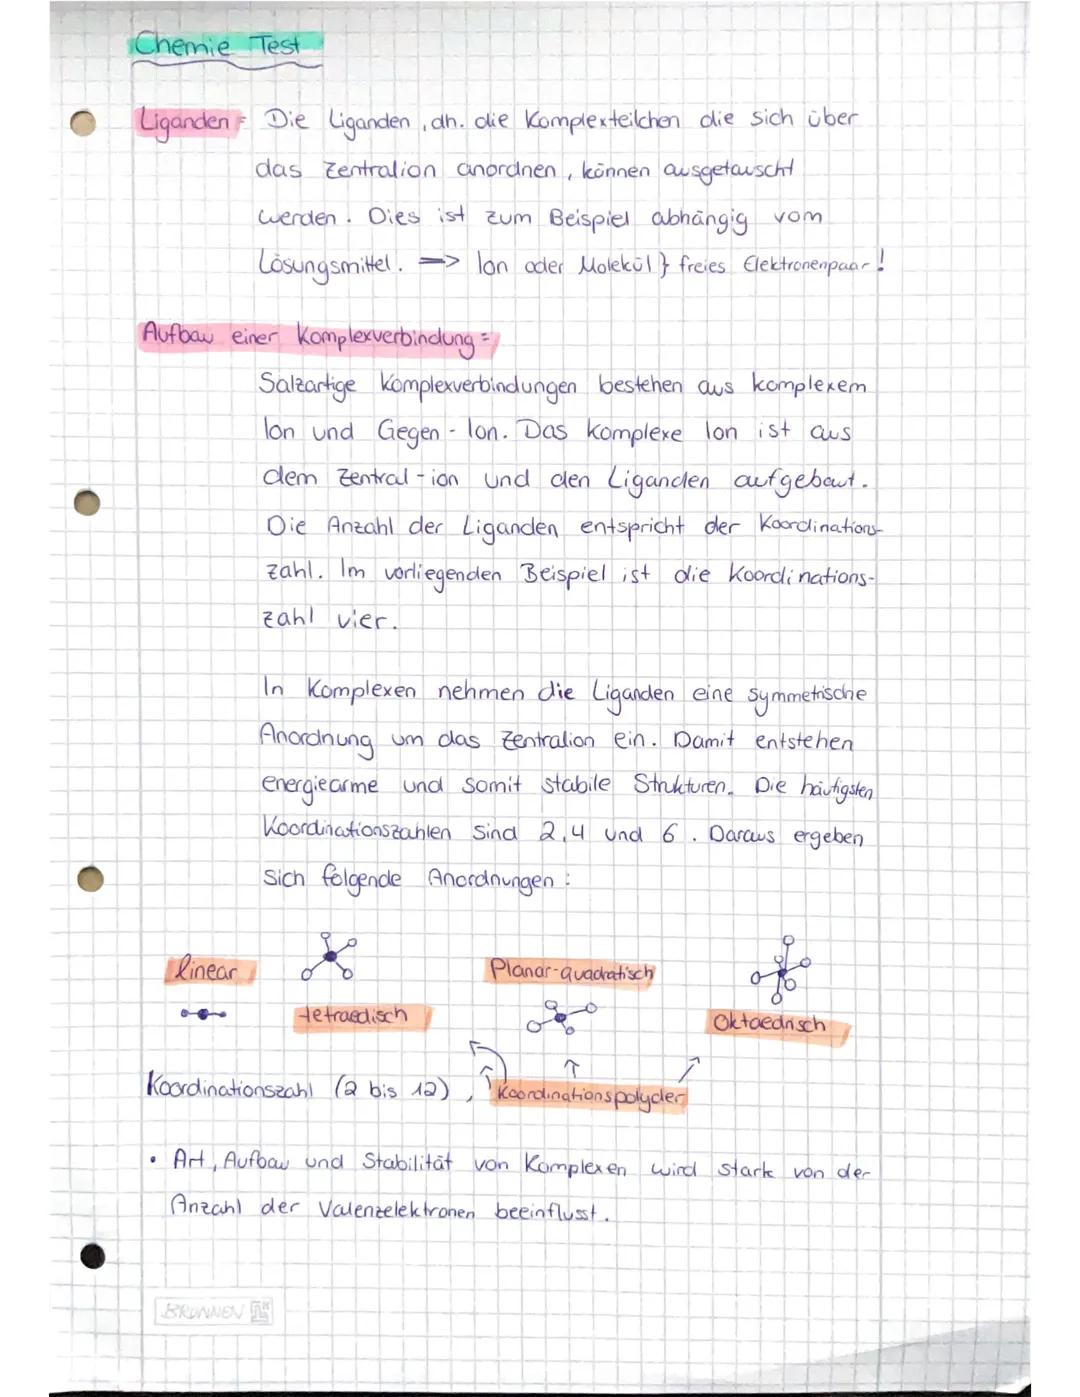 Chemie Test
Liganden = Die Liganden, dh. die Komplexteilchen die sich über
das Zentralion anordnen, können ausgetauscht
werden. Dies ist zum Beispiel abhängig vom
Lösungsmittel. => Ion oder Molekül } freies Elektronenpaar!
Aufbau einer Komplexverbindung =
Salzartige Komplexverbindungen bestehen aus komplexem
Ion und Gegen-Ion. Das komplexe Ion ist aus
dem Zentral-ion und den Liganden aufgebaut.
Die Anzahl der Liganden entspricht der Koordinations-
zahl. Im vorliegenden Beispiel ist die Koordinations-
zahl vier.
In Komplexen nehmen die Liganden eine symmetrische
Anordnung um das Zentralion ein. Damit entstehen
energiearme und somit stabile Strukturen. Die häufigsten
Koordinationszahlen sind 2,4 und 6. Daraus ergeben
sich folgende Anordnungen:
linear
Planar-quadratisch
tetraedisch
Oktaedrisch
Koordinationszahl (2 bis 12), Koordinationspolyder
• Art, Aufbau und Stabilität von Komplexen wird stark von der
Anzahl der Valenzelektronen beeinflusst.
BRUNNEN